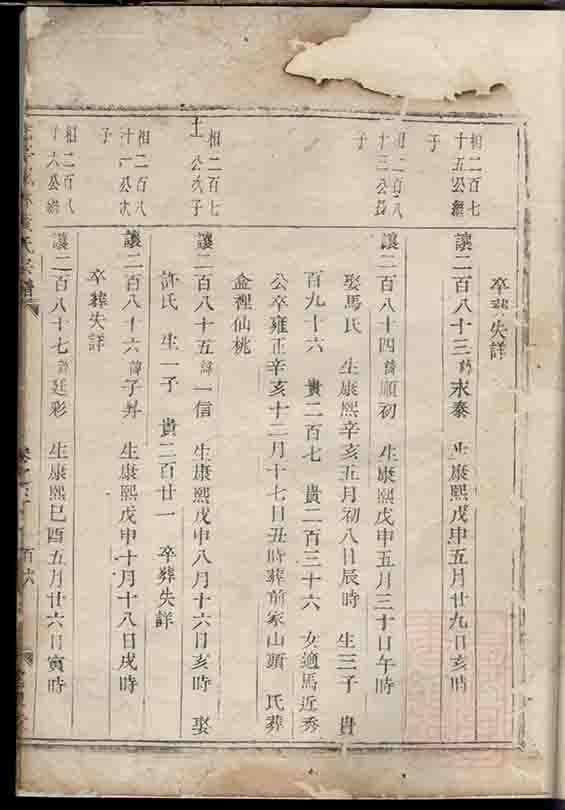 卒葬失詳
相二百七
十五公繼
子
讓二百八十三諱永泰 生康熙戊申五月廿九日亥時
相二百八
十三公長
子
讓二百八十四諱順初 生康熙戊申五月三十日午時
娶馬氏 生康熙辛亥五月初八日辰時 生三子 貴
百九十六 貴二百七 貴二百三十六 女適馬近秀
公卒雍正辛亥十二月十七日丑時葬前家山頭 氏葬
金裡仙桃
相二百七
十一公次子
讓二百八十五諱一信 生康熙戊申八月十六日亥時 娶
許氏 生一子 貴二百廿一 卒葬失詳
相二百八
十一公次
子
讓二百八十六諱子昇 生康熙戊申十月十八日戌時
卒葬失詳
相二百八
十六公繼
讓二百八十七諱廷彩 生康熙己酉五月廿六日寅時
氏宗譜
百六